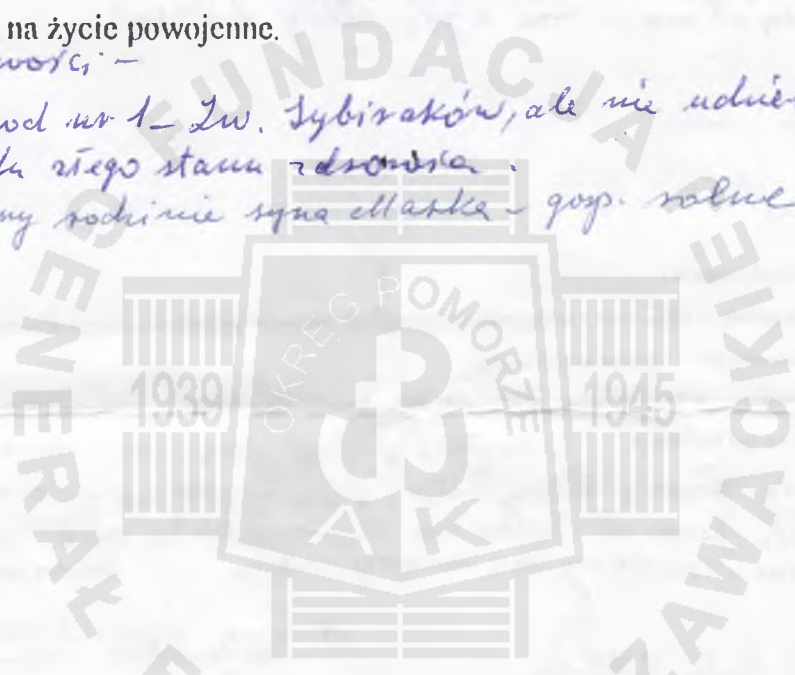 na życie powojenne.
wości –
od nr 1 – Zw. Sybiraków, ale nie udzie
du złego stanu zdrowia.
ny rodzinie syna Marka – gosp. rolne
FUNDACJA
GENERAŁ
ZAWACKIE
OKRĘG POMORZE
1939
1945
AK